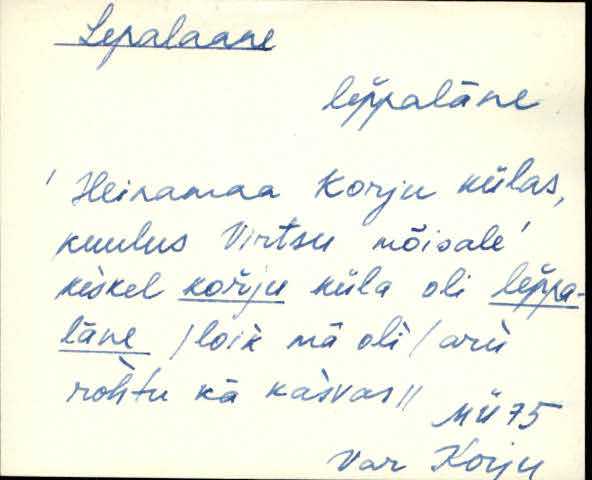 Lepalaane
lep̆palāne
' Heinamaa Korju külas,
kuulus Virtsu mõisale'
kèskel kor̆ju küla oli lep̆pa-
lāne / loìk mā olì / arù
ròhtu kā kàsvas //
MÜ 75
Var Korju